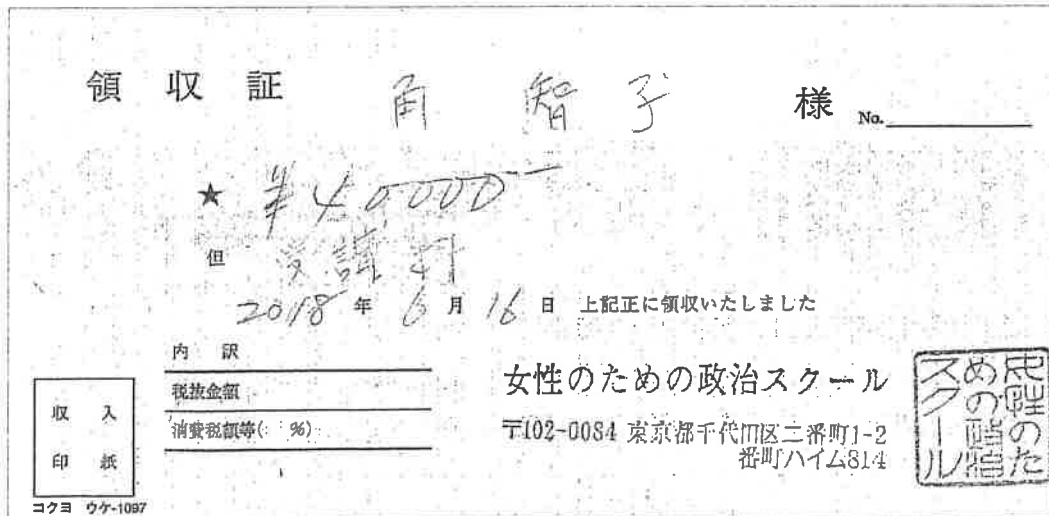 領収証 角 智子 様 No.
★ ¥40,000-
但 受講料
2018年 6月 16日 上記正に領収いたしました
内 訳
税抜金額
消費税額等( %)
収 入
印 紙
コクヨ ウケ-1097
女性のための政治スクール
〒102-0084 東京都千代田区二番町1-2
番町ハイム814
女性のた
めの政治
スクール